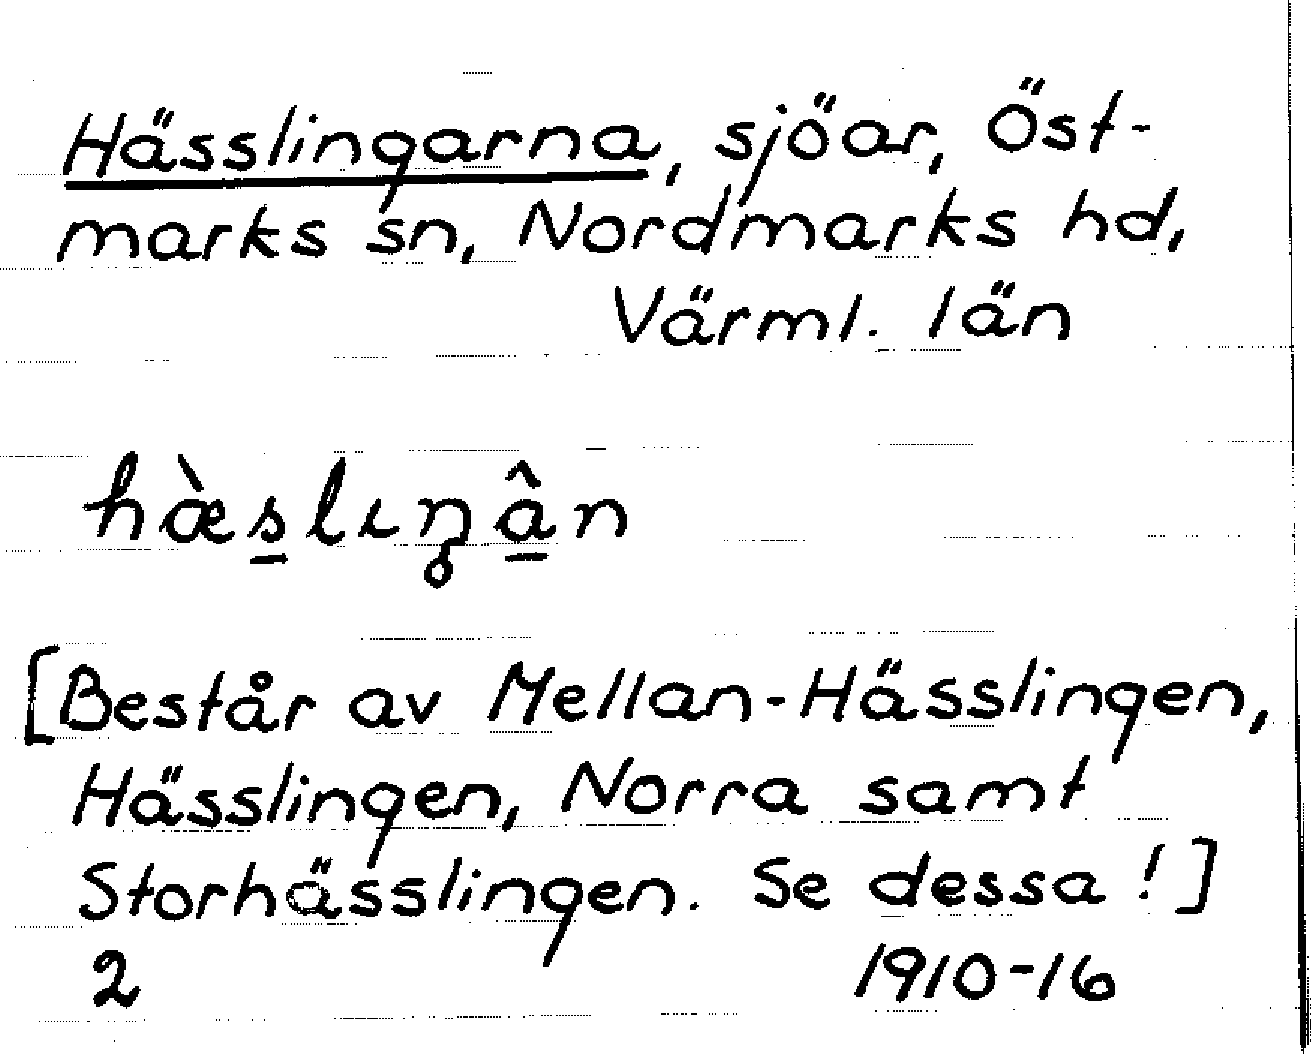 Hässlingarna, sjöar, Öst-
marks sn, Nordmarks hd,
Värml. län
hæ̀s̱lıŋâ̱n
[Består av Mellan-Hässlingen,
Hässlingen, Norra samt
Storhässlingen. Se dessa!]
2 1910-16